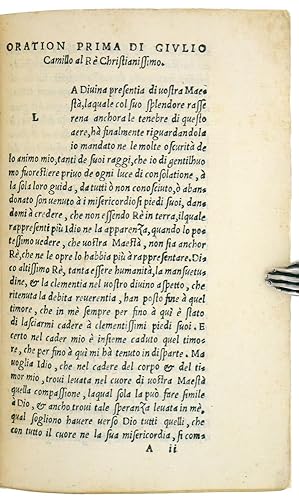 ORATION PRIMA DI GIVLIO
Camillo al Rè Christianissimo.
L A Diuina presentia di uostra Mae
stà, laquale col suo splendore rasse
rena anchora le tenebre di questo
aere, hà finalmente riguardando la
io mandato ne le molte oscurità de
lo animo mio, tanti de suoi raggi, che io di gentilhuo
mo fuorestiere priuo de ogni luce di consolatione, à
la sola loro guida, da tutti ò non conosciuto, ò aban
donato son uenuto à i misericordiosi piedi suoi, dan
domi à credere, che non essendo Rè in terra, ilquale
rappresenti più Idio ne la apparenza, quando lo po=
tessimo uedere, che uostra Maestà, non sia anchor
Rè, che ne le opre lo habbia più à rappresentare. Di
co altissimo Rè, tanta essere humanità, la mansuetu=
dine, & la clementia nel uostro diuino aspetto, che
ritenuta la debita reuerentia, han posto fine à quel
timore, che in mè sempre per fino à quì è stato
di lasciarmi cadere à clementissimi piedi suoi. E
certo nel cader mio è insieme caduto quel timo=
re, che per fino à quì mi hà tenuto in disparte. Ma
uoglia Idio, che nel cadere del corpo & del ti
mor mio, troui leuata nel cuore di uostra Maestà
quella compassione, laqual sola la può fare simile
à Dio, & anchor troui tale speranza leuata in mè,
qual sogliono hauere uerso Dio tutti quelli, che
con tutto il cuore ne la sua misericordia, si com=
A ii